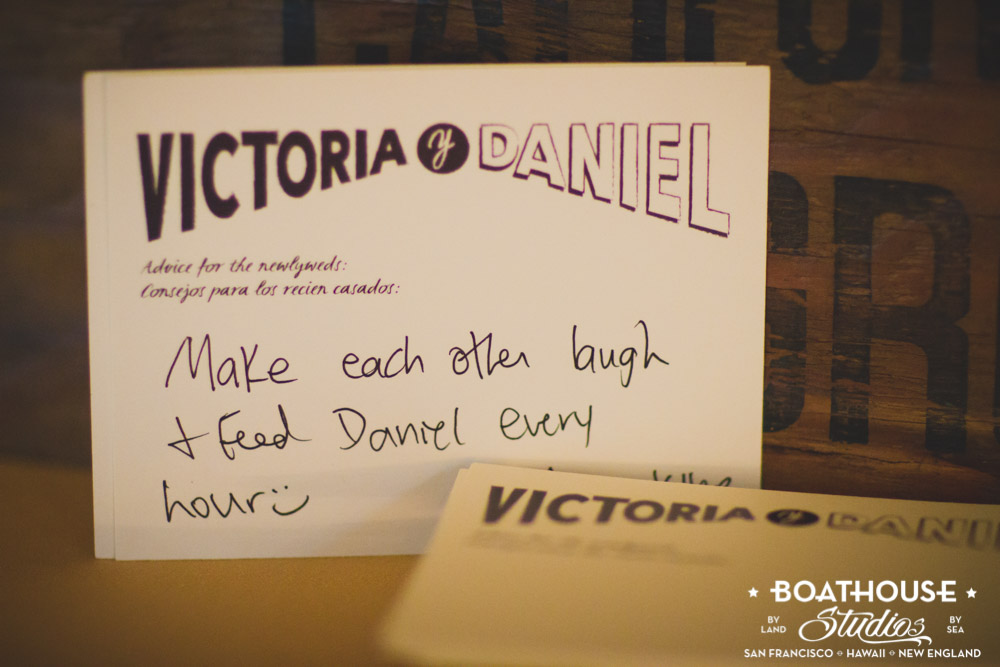 VICTORIA y DANIEL
Advice for the newlyweds:
Consejos para los recien casados:
Make each other laugh
+ Feed Daniel every
hour :)
VICTORIA y DANI
BOATHOUSE
BY LAND Studios BY SEA
SAN FRANCISCO HAWAII NEW ENGLAND